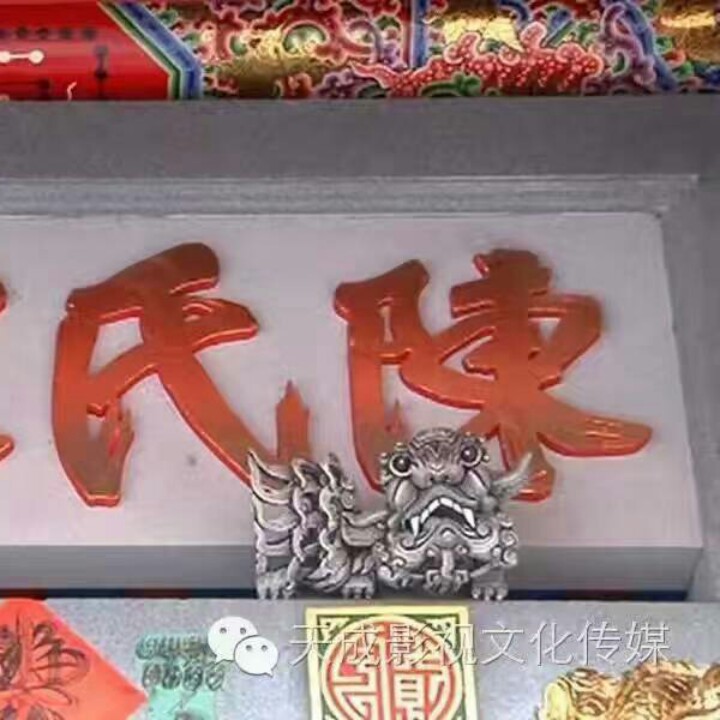 陳氏
天成影视文化传媒